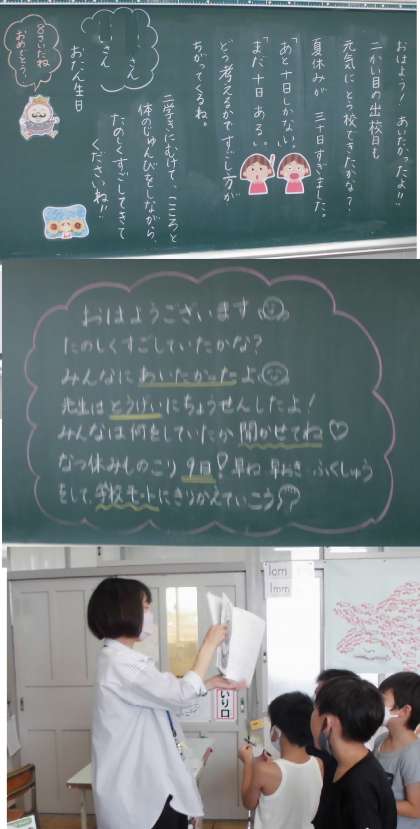 おはよう！あいたかったよ!!
二かい目の出校日も
元気にとう校できたかな？
夏休みが 三十日すぎました。
「あと十日しかない！」
「まだ十日ある。」
どう考えるかですごし方が
ちがってくるね。
二学きにむけて、こころと
体のじゅんびをしながら、
たのしくすごしてきて
くださいね!!
おたん生日
さん
さん
8さいだね
おめでとう。
おはようございます
たのしくすごしていたかな？
みんなに あいたかったよ
先生は とうげいにちょうせんしたよ！
みんなは何をしていたか 聞かせてね♡
なつ休みものこり 9日！早ね 早おき ふくしゅう
をして、学校モードにきりかえていこう
1cm
1mm
いり口